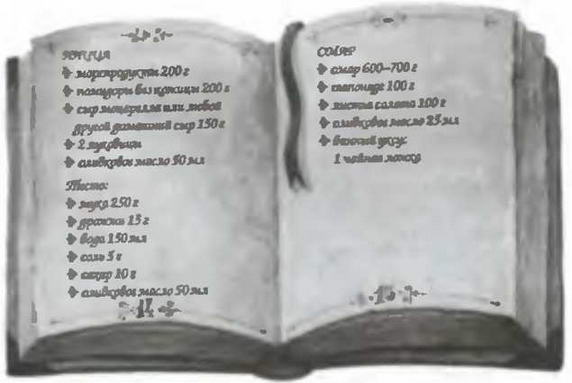 ПИЦЦА
морепродукты 200 г
помидоры без кожицы 200 г
сыр моцарелла или любой
другой домашний сыр 150 г
2 луковицы
оливковое масло 50 мл
Тесто:
мука 250 г
дрожжи 15 г
вода 150 мл
соль 5 г
сахар 10 г
оливковое масло 50 мл
14
ОМАР
омар 600–700 г
100 г
листья салата 100 г
оливковое масло 25 мл
винный уксус
1 чайная ложка